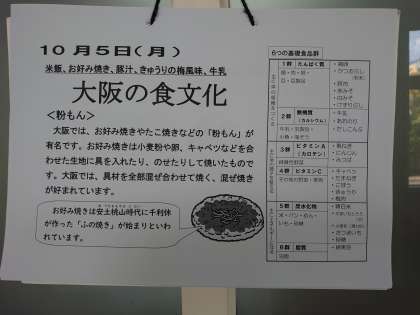 10月5日(月)
米飯、お好み焼き、豚汁、きゅうりの梅風味、牛乳
大阪の食文化
＜粉もん＞
大阪では、お好み焼きやたこ焼きなどの「粉もん」が
有名です。お好み焼きは小麦粉や卵、キャベツなどを合
わせた生地に具を入れたり、のせたりして焼いたもので
す。大阪では、具材を全部混ぜ合わせて焼く、混ぜ焼き
が好まれています。
お好み焼きは安土桃山時代に千利休
が作った「ふの焼き」が始まりといわ
れています。
6つの基礎食品群
1群 たんぱく質
魚・肉・卵・
豆・豆製品
・豚肉
・みそ
2群 無機質
(カルシウム)
牛乳・乳製品・
小魚・海そう
・牛乳
・あおのり
・だしこんぶ
3群 ビタミンA
(カロテン)
緑黄色野菜
・にんじん
・みつば
4群 ビタミンC
その他の野菜・果物
・キャベツ
・たまねぎ
・ごぼう
・きゅうり
・梅肉
5群 炭水化物
米・パン・めん・
いも・砂糖
・精白米
・さつまいも
・砂糖
6群 脂質
油脂
・綿実油